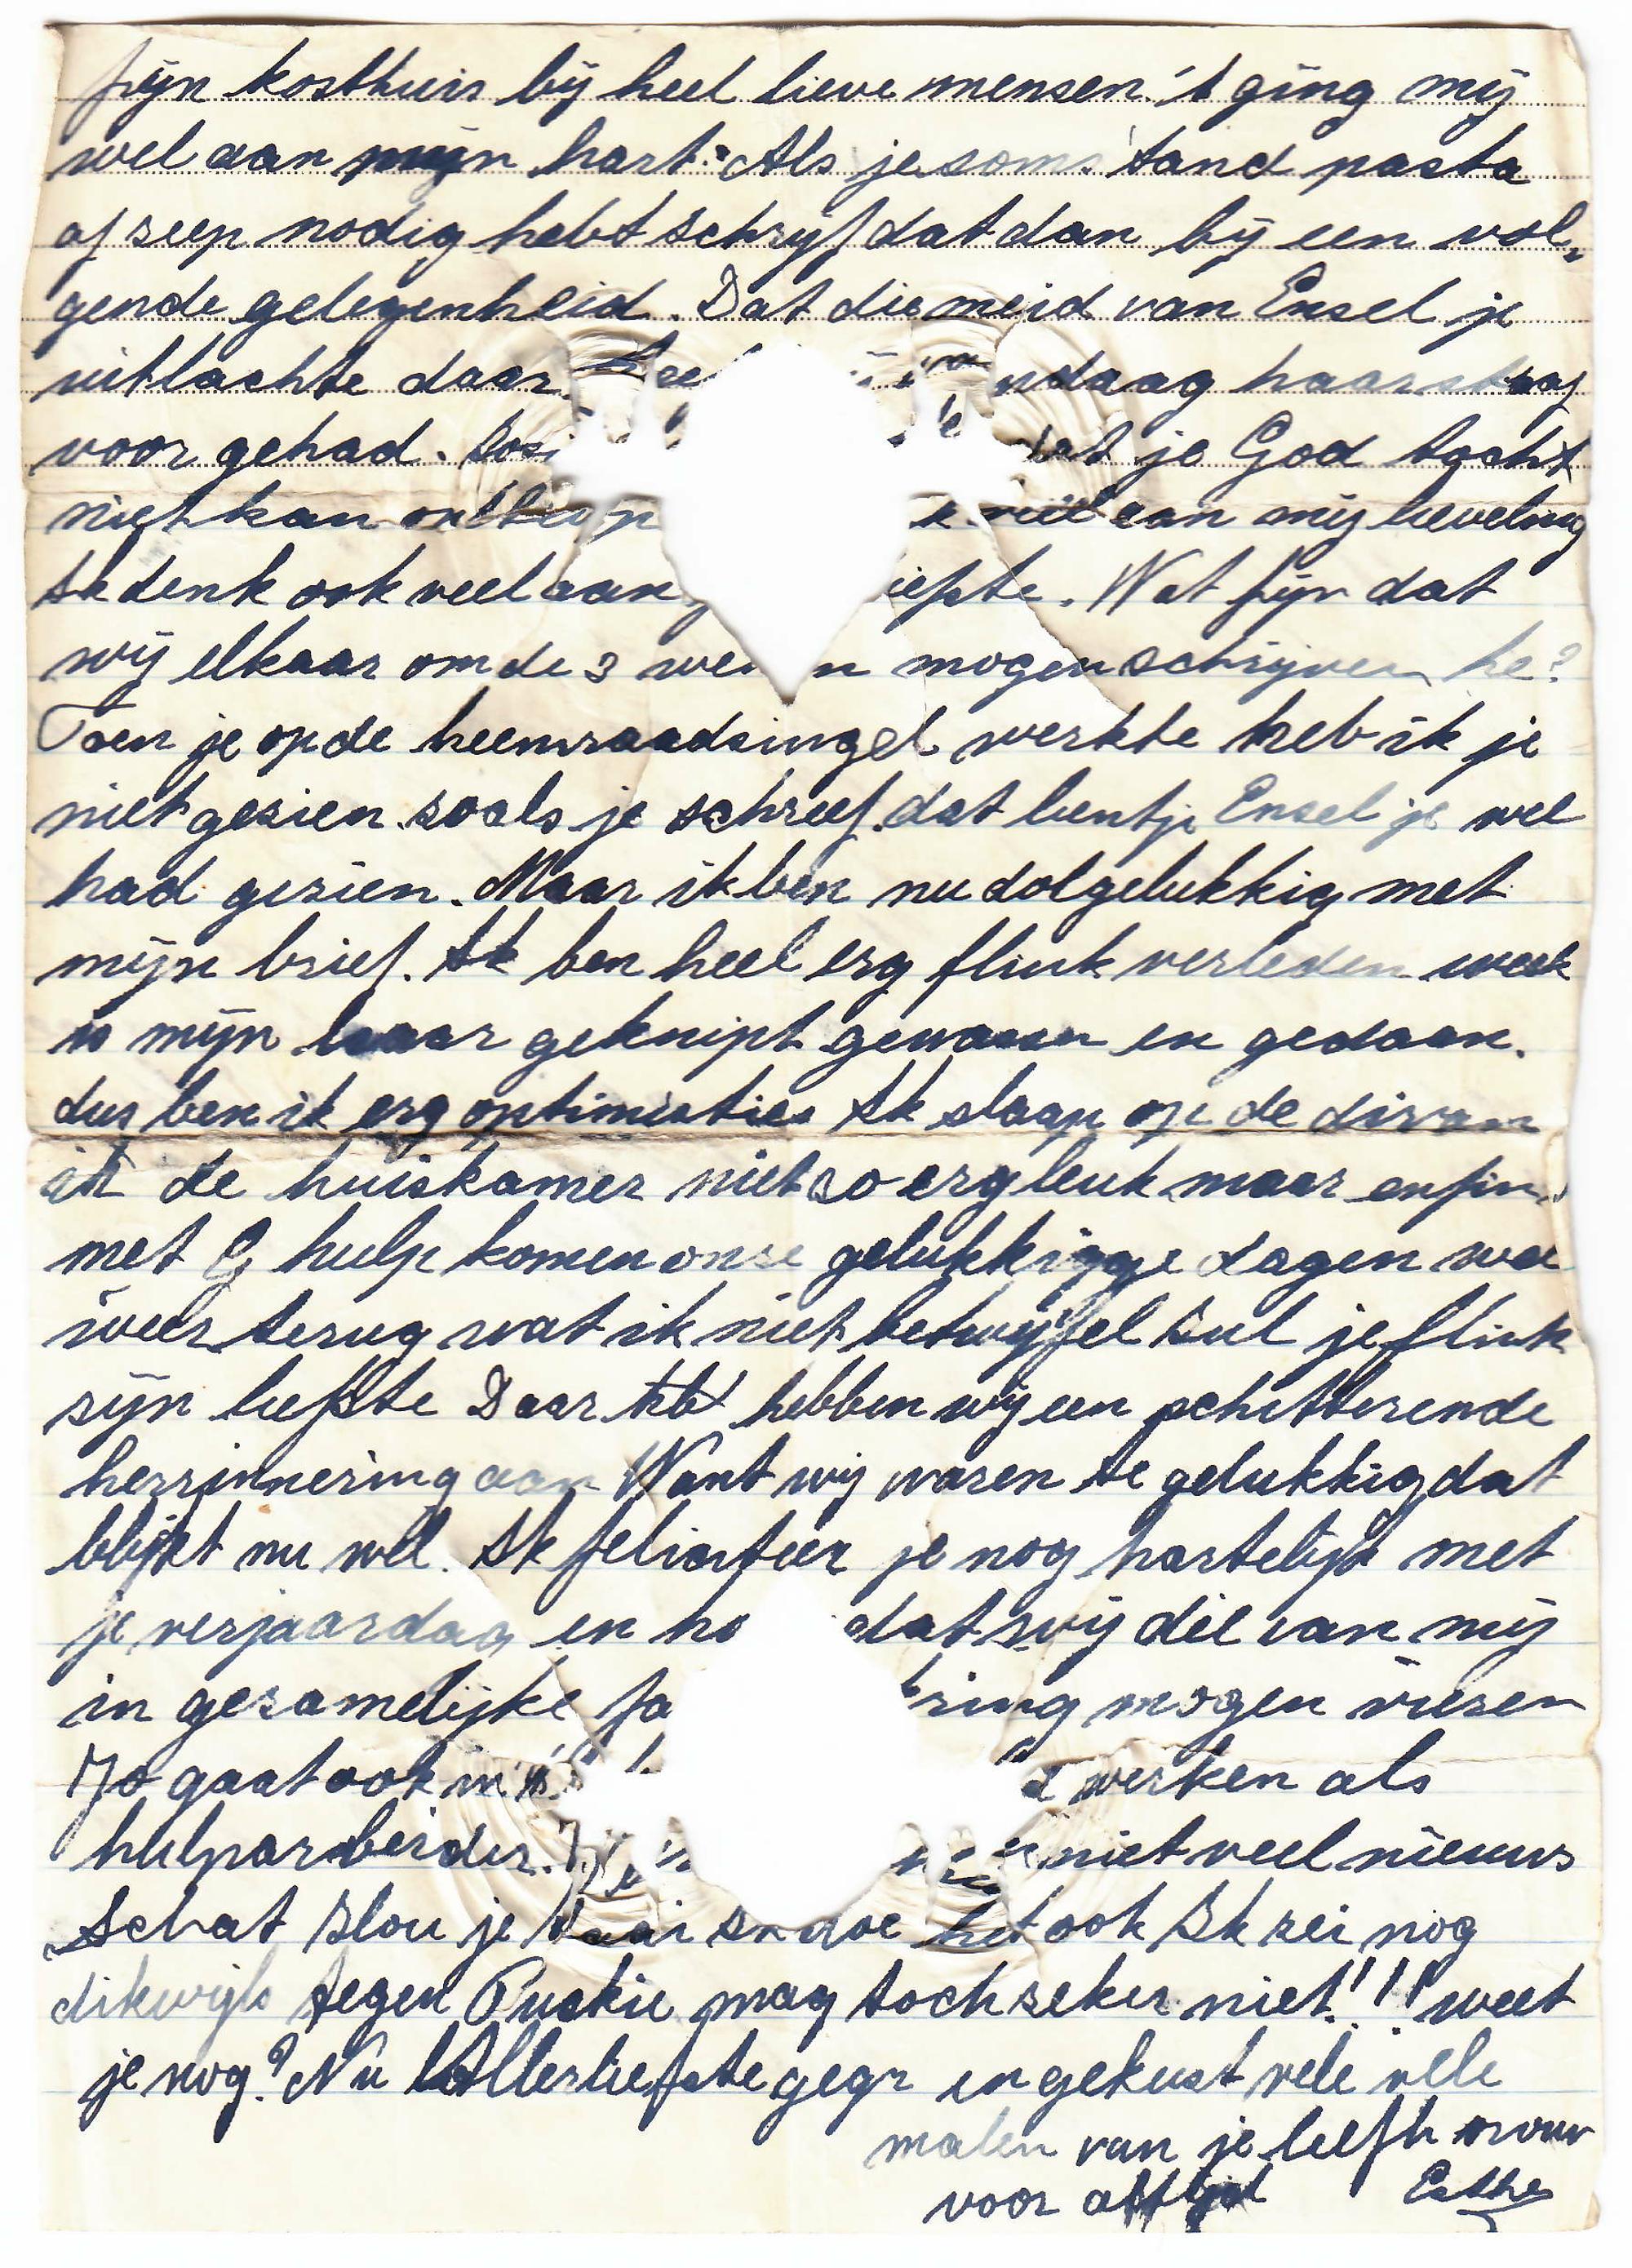 fijn kosthuis bij heel lieve mensen 't ging mij
wel aan mijn hart. Als je soms tand pasta
of zeep nodig hebt schrijf dat dan bij een vol-
gende gelegenheid. Dat die meid van Ensel je
uitlachte daar ndaag haar straf
voor gehad. dat je God tocht
niet kan veel aan mij lieveling
Ik denk ook veel aan iefste. Wat fijn dat
wij elkaar om de 3 we n mogen schrijven he?
Toen je op de heemraadsingel werkte heb ik je
niet gezien zoals je schreef dat leentje Ensel je wel
had gezien. Maar ik ben nu dolgelukkig met
mijn brief. Ik ben heel erg flink verleden week
is mijn haar geknipt gewassen en gedaan.
dus ben ik erg optimisties Ik slaap op de divan
in de huiskamer niet zo erg leuk maar enfin
met G hulp komen onze gelukkigge dagen wel
weer terug wat ik niet betwijfel Zul je flink
zijn liefste Daar hebben wij een schitterende
herrinnering aan Want wij waren te gelukkig dat
blijkt nu wel. Ik felicifteer je nog hartelijk met
je verjaardag en ho dat wij die van mij
in gezamelijke fa kring mogen vieren
Jo gaat ook in werken als
hulparbeider. niet veel nieuws
Schat Hou je taai en doe het ook Ik zei nog
dikwijls tegen Puckie mag toch zeker niet!!! weet
je nog? Nu Allerliefste gegr en gekust vele vele
malen van je liefh vrouw
voor altijd Esther